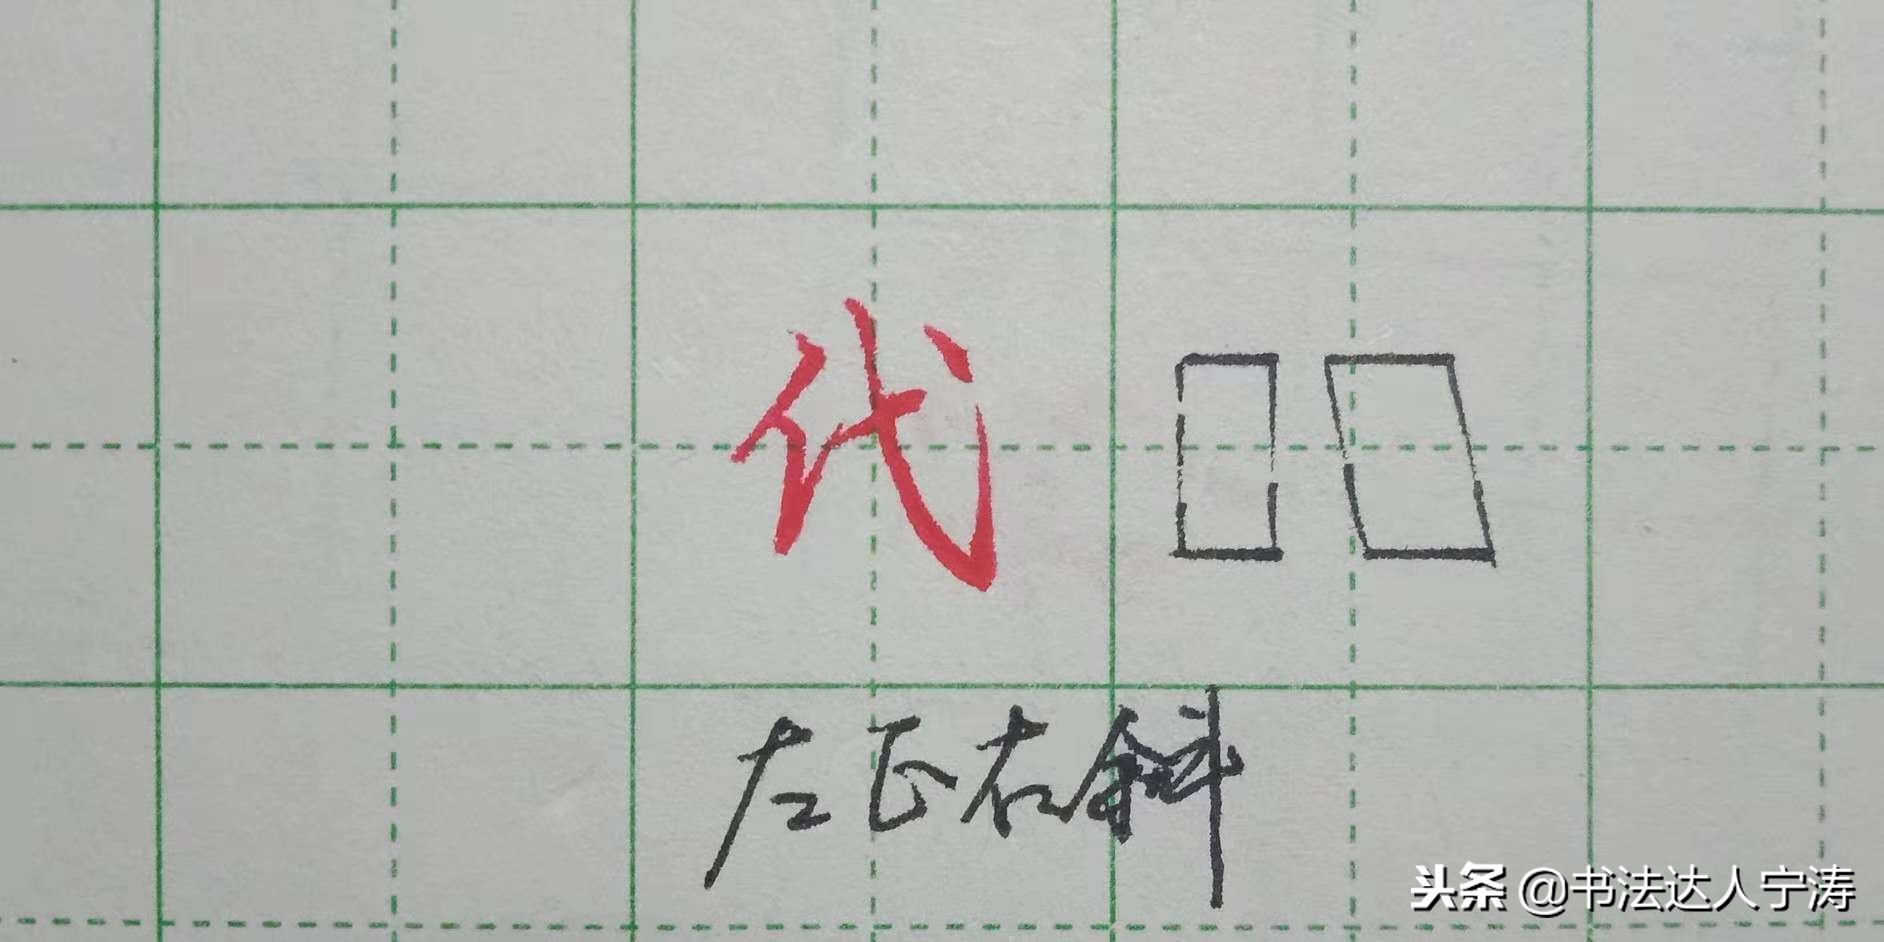 代
左正右斜
头条 @书法达人宁涛